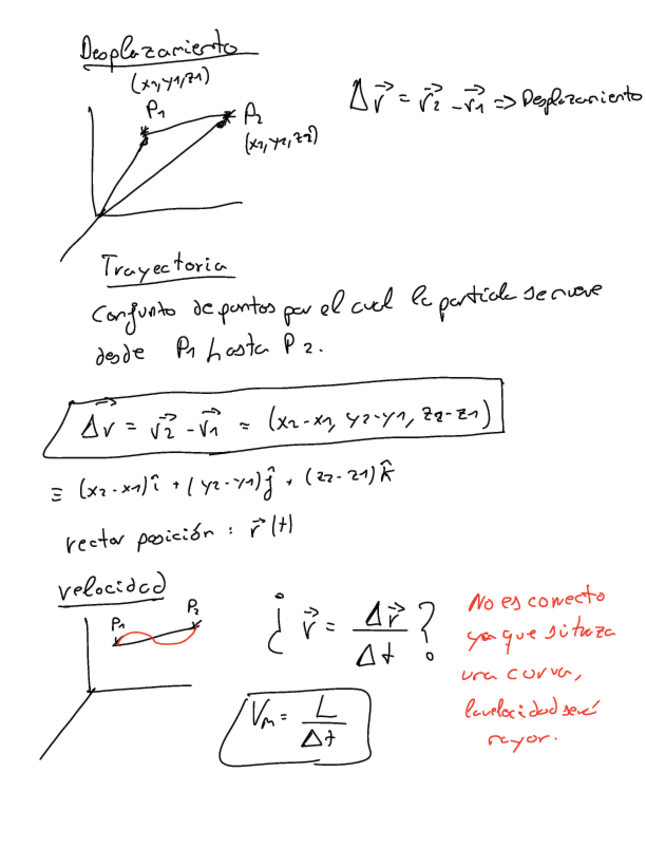 Desplazamiento
(x1,y1,z1)
P1
P2
(x2,y2,z2)
Δr⃗ = r⃗2 - r⃗1 => Desplazamiento
Trayectoria
Conjunto de puntos por el cual la partícula se mueve
desde P1 hasta P2.
Δr⃗ = r⃗2 - r⃗1 = (x2-x1, y2-y1, z2-z1)
≡ (x2-x1)î + (y2-y1)ĵ + (z2-z1)k̂
vector posición : r⃗(t)
velocidad
P1
P2
¿ v⃗ = Δr⃗/Δt ?
Vm = L/Δt
No es correcto
ya que si traza
una curva,
la velocidad será
mayor.